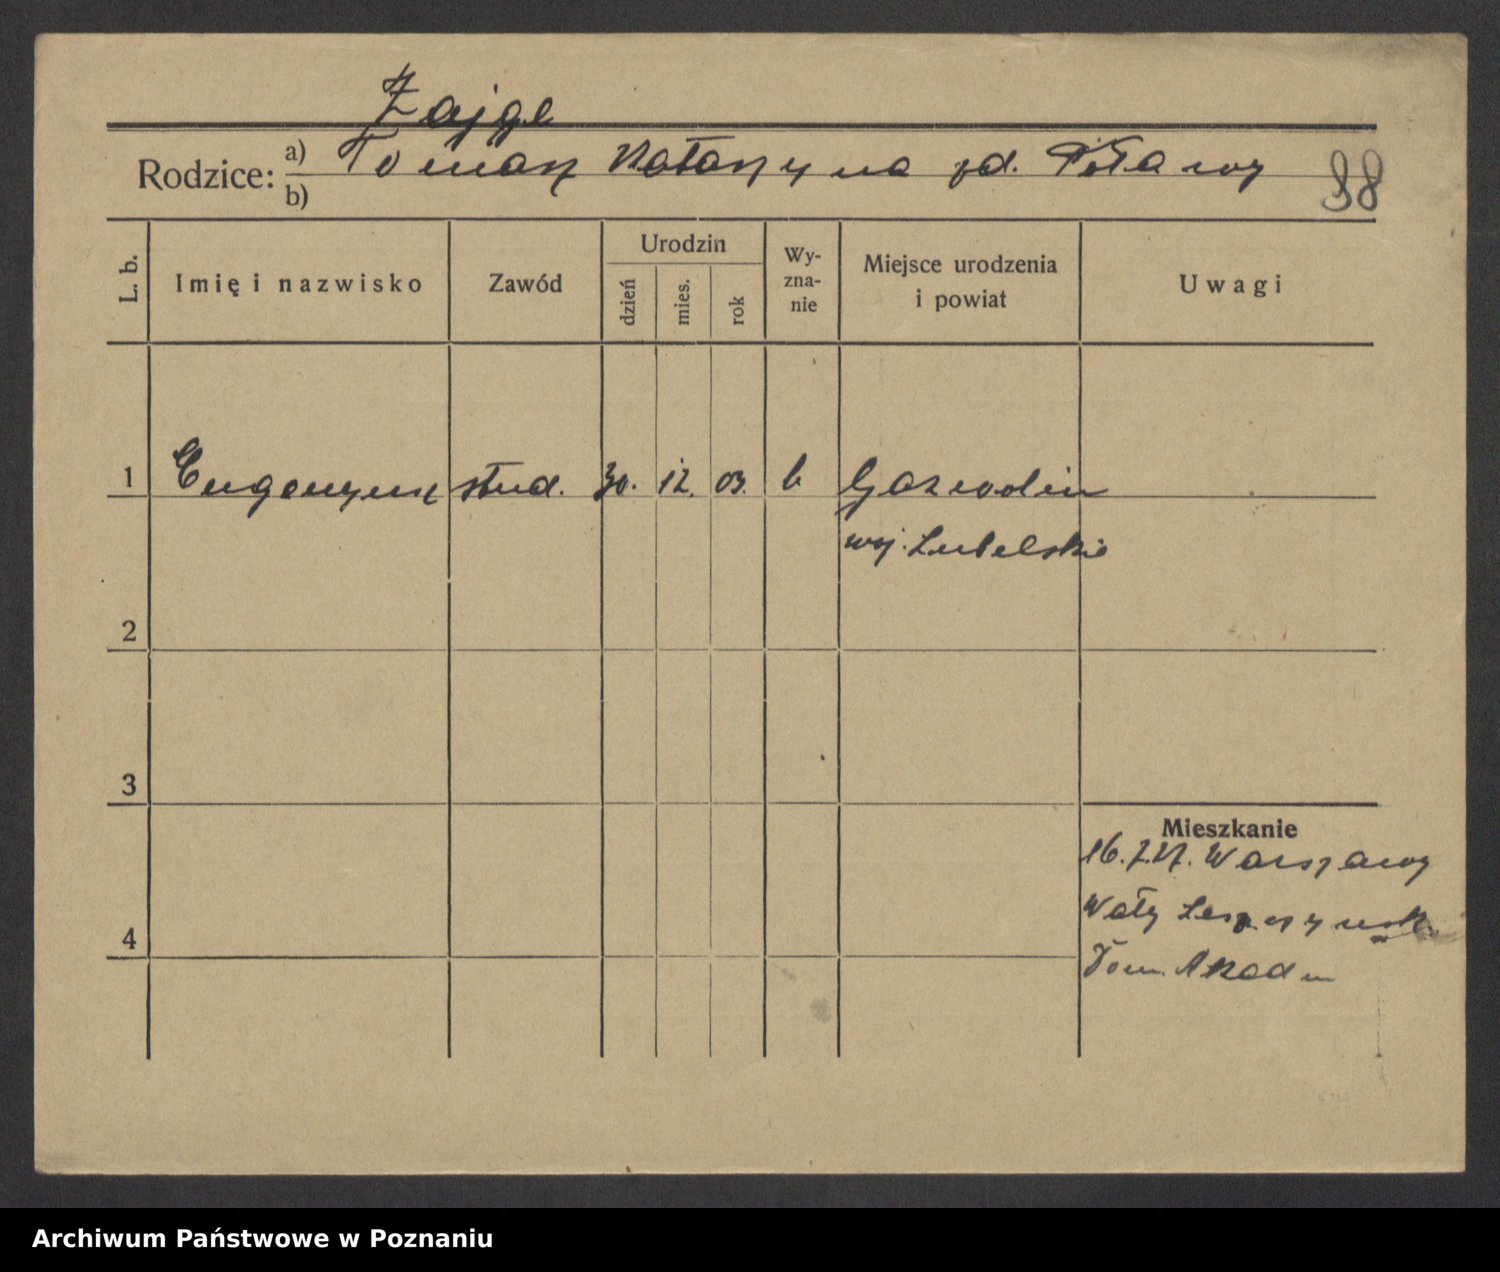 Zajgl
Rodzice: a) Tomasz Katarzyna zd. Piława
b)
38
L. b. Imię i nazwisko Zawód Urodzin dzień mies. rok Wy-zna-nie Miejsce urodzenia i powiat Uwagi
1 Eugenjusz stud. 30. 12. 03. k Garwolin
woj. Lubelskie
2
3
Mieszkanie
16.7.27. Warszawy
4 Wały Leszczyńsk.
Dom Akadm
Archiwum Państwowe w Poznaniu